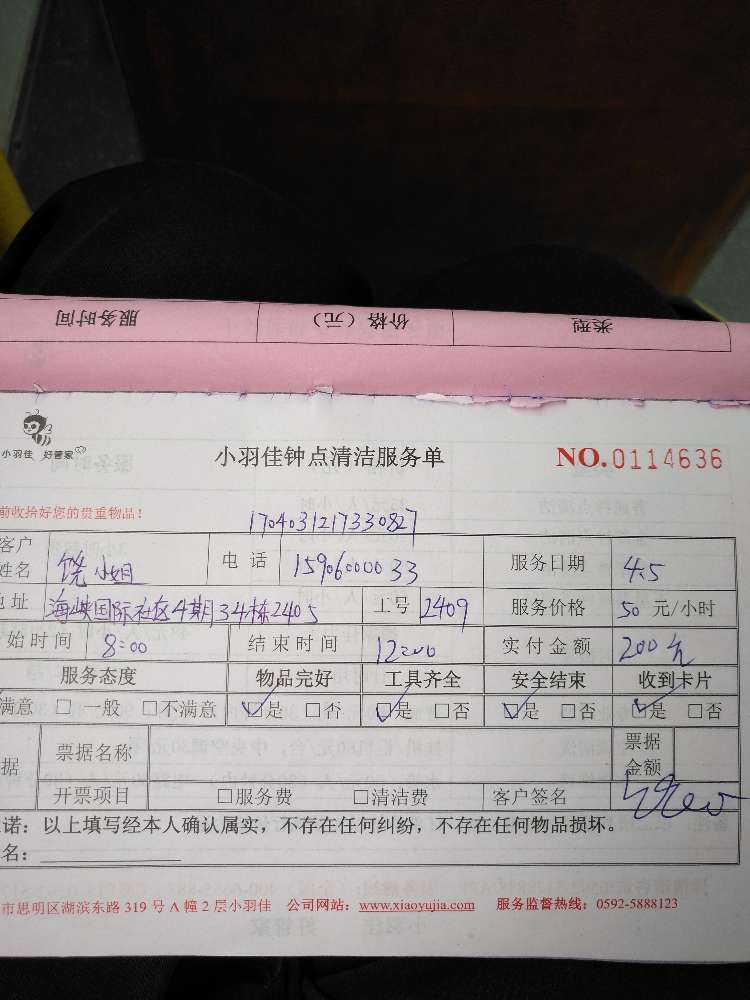 服务时间 价格（元） 类型
小羽佳 好管家 小羽佳钟点清洁服务单 NO.0114636
前收拾好您的贵重物品！ 1704031217330827
客户姓名 饶小姐 电话 15906000033 服务日期 4.5
地址 海峡国际社区4期34栋2405 工号 2409 服务价格 50 元/小时
始时间 8:00 结束时间 12:00 实付金额 200元
服务态度 物品完好 工具齐全 安全结束 收到卡片
满意 □一般 □不满意 ☑是 □否 ☑是 □否 ☑是 □否 ☑是 □否
据 票据名称 票据金额
开票项目 □服务费 □清洁费 客户签名
诺：以上填写经本人确认属实，不存在任何纠纷，不存在任何物品损坏。
名：
市思明区湖滨东路 319 号 A 幢 2 层小羽佳 公司网站：www.xiaoyujia.com 服务监督热线：0592-5888123